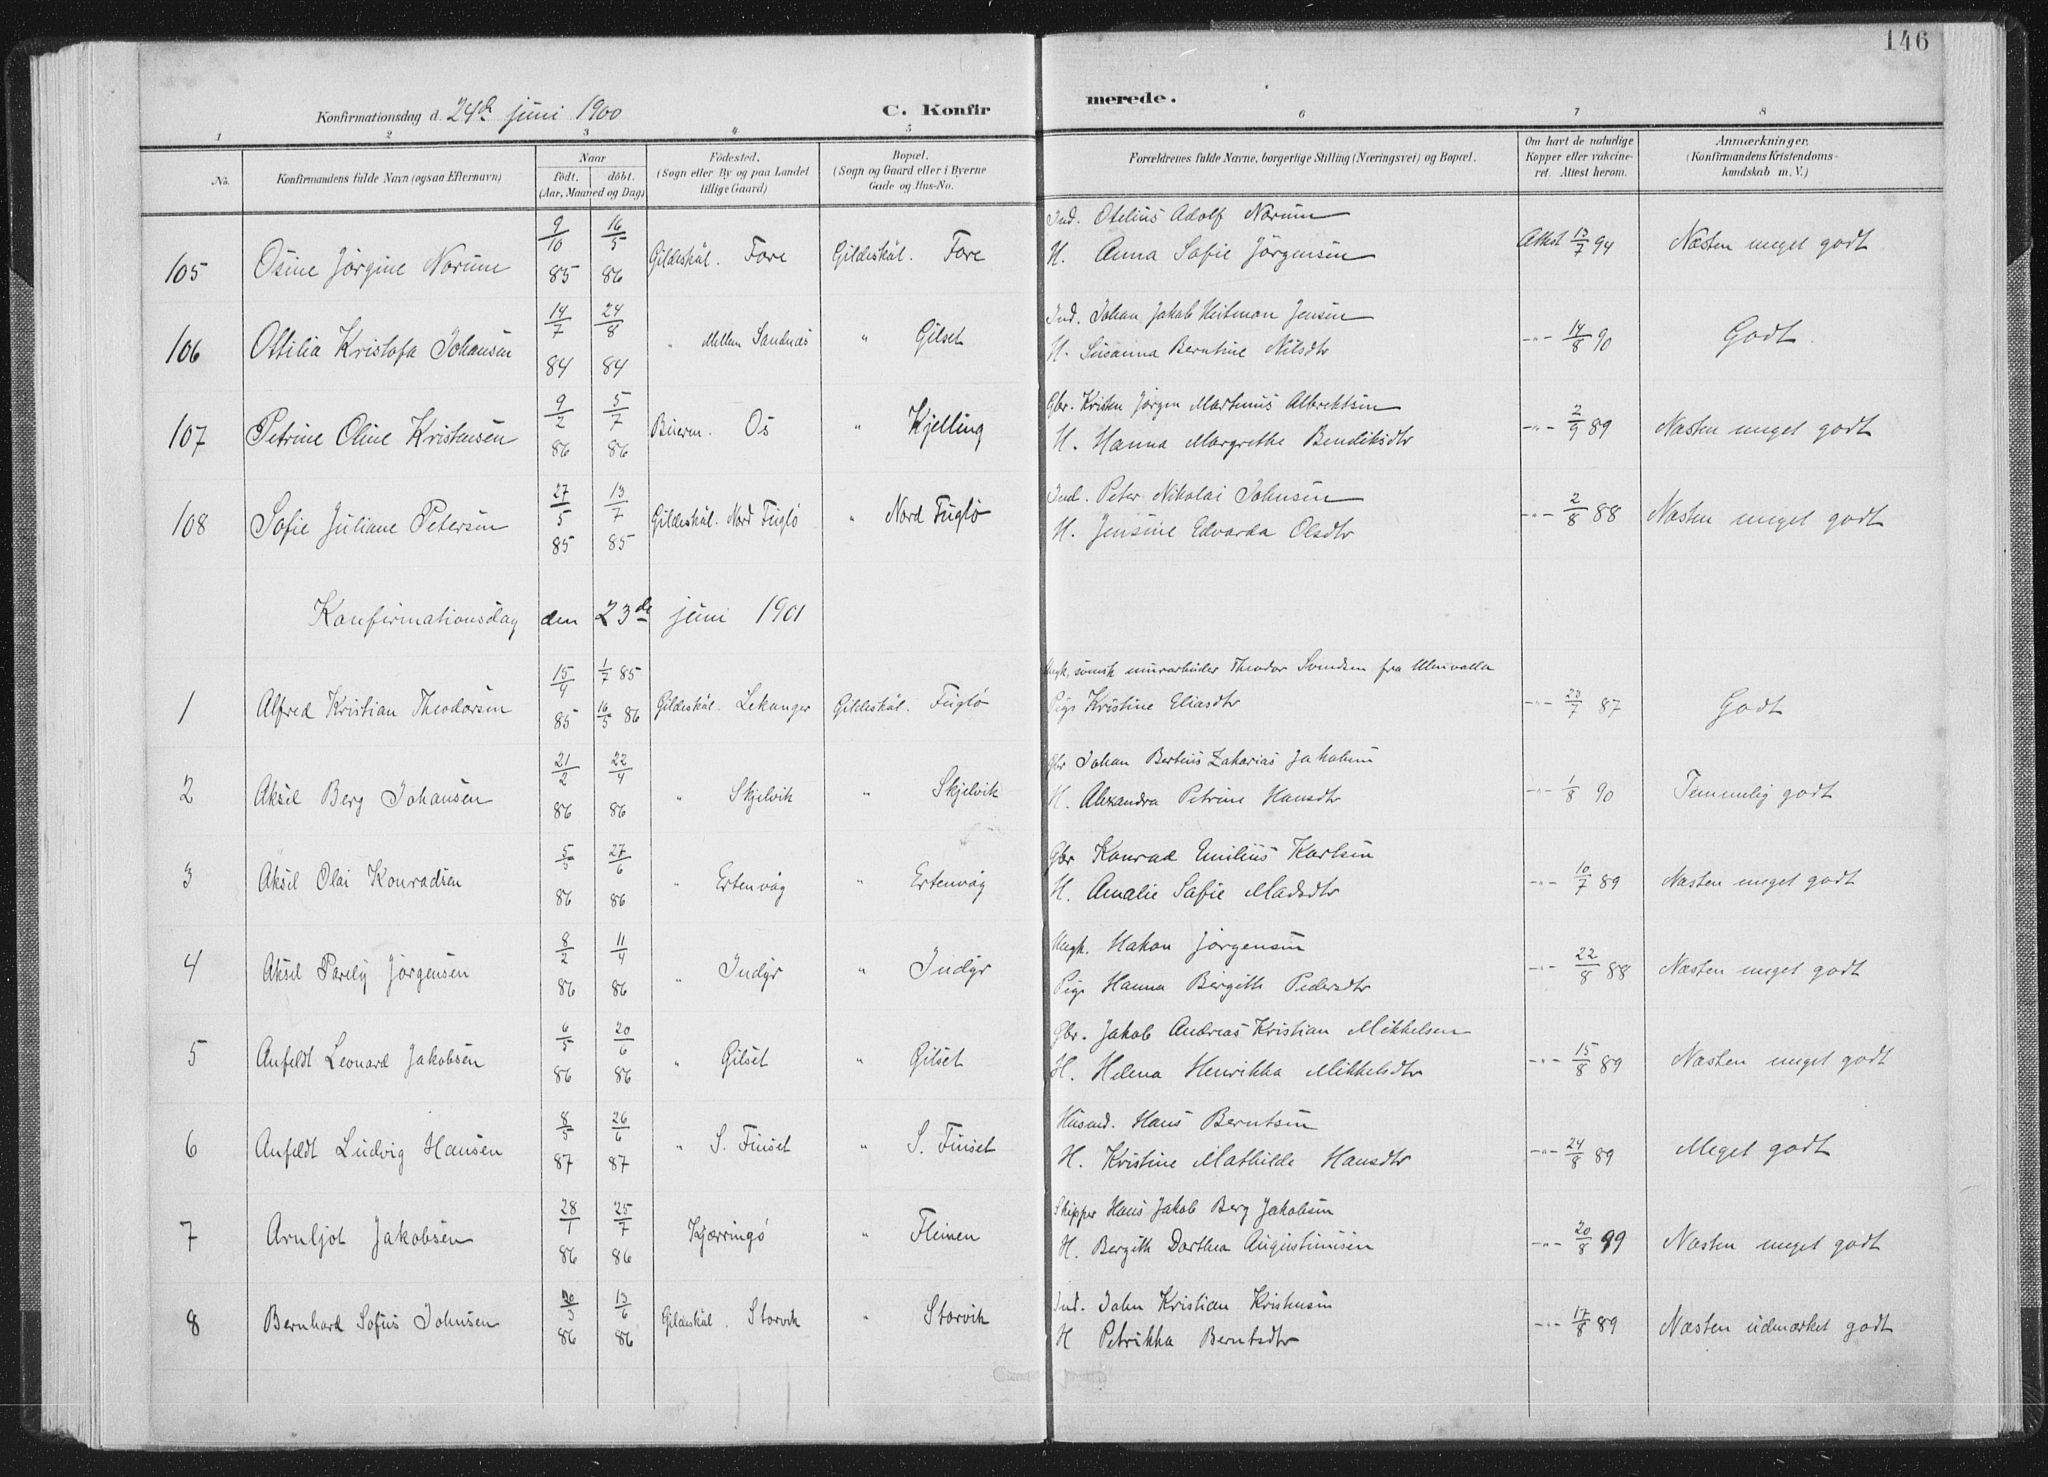 146
Konfirmationsdag d. 24de juni 1900 C. Konfirmerede.
1 2 3 4 5 6 7 8
No. Konfirmandens fulde Navn (ogsaa Efternavn) Naar Födt. döbt. (Aar, Maaned og Dag) Födested. (Sogn eller By og paa Landet tillige Gaard) Bopæl. (Sogn og Gaard eller i Byerne Gade og Hus-No. Forældrenes fulde Navne, borgerlige Stilling (Næringsvei) og Bopæl. Om havt de naturlige Kopper eller vakcineret. Attest herom. Anmærkninger. (Konfirmandens Kristendomskundskab m. V.)
105 Osine Jörgine Norum 9/10 85 16/5 86 Gildeskål. Fore Gildeskål. Fore Ind. Otelius Adolf Norum
H. Anna Sofie Jörgensen Attest 13/7 94 Næsten meget godt
106 Ottilia Kristofa Johansen 14/7 84 24/8 84 " Mellem Sandnæs " Gilset Ind. Johan Jakob Heitman Jensen
H. Susanna Berntine Nilsdtr -"- 14/8 90 Godt.
107 Petrine Oline Kristensen 9/2 86 5/7 86 Beiern. Os " Kjelling Gbr. Kristen Jörgen Martinus Albrektsen
H. Hanna Margrethe Bendiksdtr -"- 2/9 89 Næsten meget godt
108 Sofie Juliane Petersen 27/5 85 13/7 85 Gildeskål. Nord Fuglö " Nord Fuglö Ind. Peter Nikolai Johnsen
H. Jensine Edvarda Olsdtr -"- 2/8 88 Næsten meget godt
Konfirmationsdag den 23de juni 1901
1 Alfred Kristian Theodorsen 15/4 85 1/7 85 16/5 86 Gildeskål. Lekanger Gildeskål. Fuglö Ungk. svensk murarbeider Theodor Svendsen fra Uhnivalla
Pige Kristine Eliasdtr -"- 20/7 87 Godt
2 Aksel Berg Johansen 21/2 86 22/4 86 " Skjelvik " Skjelvik Gbr Johan Bertius Zakarias Jakobsen
H. Alexandra Petrine Hansdtr -"- 1/8 90 Temmelig godt
3 Aksel Olai Konradsen 5/5 86 27/6 86 " Ertenvåg " Ertenvåg Gbr Konrad Emilius Karlsen
H. Amalie Sofie Madsdtr -"- 10/7 89 Næsten meget godt
4 Aksel Parely Jörgensen 8/2 86 11/4 86 " Indyr " Indyr Ungk. Hakon Jörgensen
Pige Hanna Bergith Pedersdtr -"- 22/8 88 Næsten meget godt
5 Anfeldt Leonard Jakobsen 6/5 86 20/6 86 " Gilset " Gilset Gbr. Jakob Andreas Kristian Mikkelsen
H. Helena Henrikka Mikkelsdtr -"- 15/8 89 Næsten meget godt
6 Anfeldt Ludvig Hansen 8/5 87 26/6 87 " S. Finset " S. Finset Husmd. Hans Berntsen
H. Kristine Mathilde Hansdtr -"- 24/8 89 Meget godt
7 Arnljot Jakobsen 28/1 86 25/7 86 Kjærringö " Fleinen Skipper Hans Jakob Berg Jakobsen
H. Bergith Dorthea Augustinusen -"- 20/8 99 Næsten meget godt
8 Bernhard Sofus Johnsen 30/3 86 13/6 86 Gildeskål. Storvik " Storvik Ind. John Kristian Kristensen
H Petrikka Berntsdtr -"- 17/8 89 Næsten udmærket godt